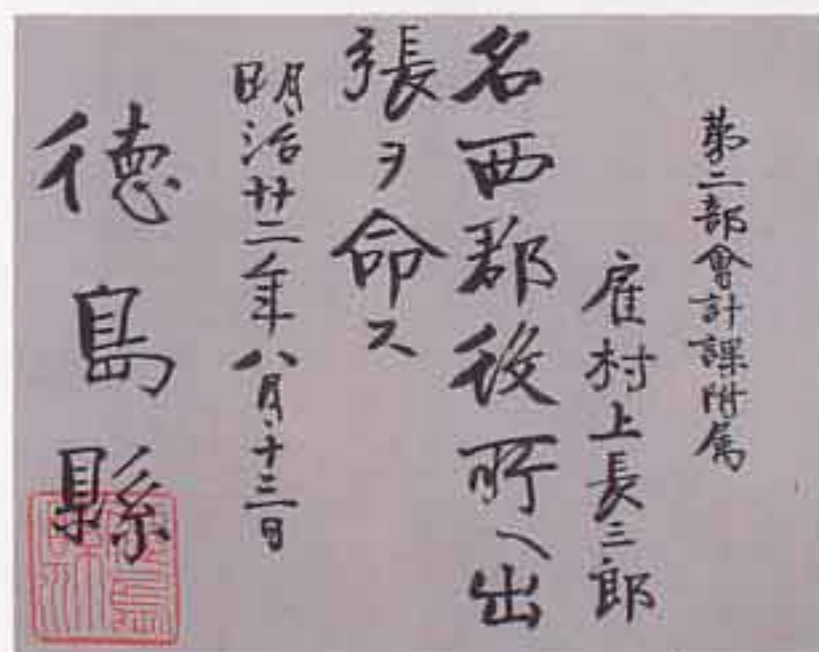 第二部會計課附属
雇村上長三郎
名西郡役所ヘ出
張ヲ命ス
明治廿二年八月十三日
徳島縣